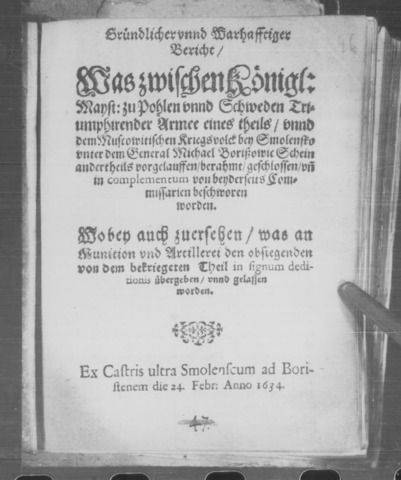 Gründlicher vnnd Warhafftiger
Bericht /
Was zwischen Königl:
Mayst: zu Pohlen vnnd Schweden Tri-
umphirender Armee eines theils / vnnd
dem Muscowitischen Kriegsvolck bey Smolensko
vnter dem General Michael Borißowic Schein
andertheils vorgelauffen / berahmt / geschlossen / vñ
in complementum von beyderseits Com-
missarien beschworen
worden.
Wobey auch zuersehen / was an
Munition vnd Artillerei den obsiegenden
von dem bekriegeten Theil in signum dedi-
tionis übergeben / vnnd gelassen
worden.
Ex Castris ultra Smolenscum ad Bori-
stenem die 24. Febr: Anno 1634.